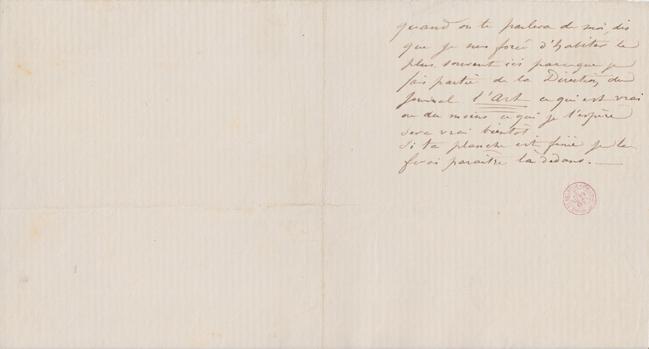 quand on te parlera de moi, dis
que je suis forcé d'habiter le
plus souvent ici parceque je
fais partie de la Direction du
journal l'Art ce qui est vrai
ou du moins ce qui je l'espère
sera vrai bientôt.
Si ta planche est finie je la
ferai paraître là dedans. —